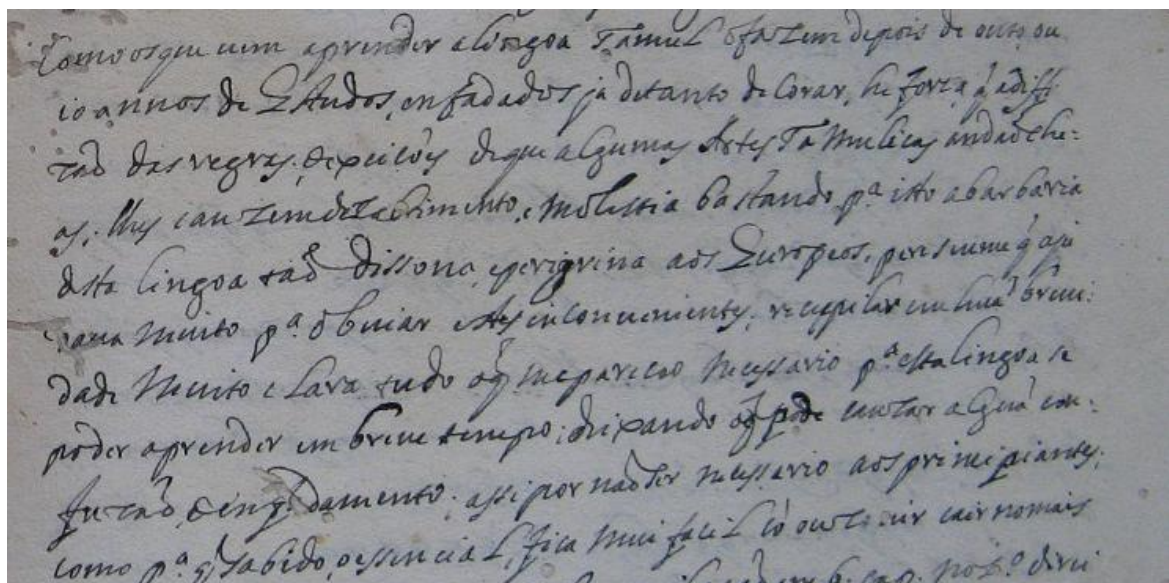 Como os que uem aprender a lingoa Tamul o fazem depois de outo ou
io annos de Estudos, enfadados ja de tanto decorar, he força q̃ a diff
zaõ das regras, & exceicoẽs de que algumas Artes Tamulicas andaõ che=
as, lhes cauzem desabrimento, e molestia bastando pª isto a barbaria
desta lingoa taõ dissona, e perigrina aos Europeos, persueme q̃ aju
muito pª obuiar estes inconuenientes, recupilar em huã breui=
dade muito clara tudo oq̃ me pareceo necessario pª esta lingoa se
poder aprender em breue tempo; deixando oq̃ pode cauzar alguã con=
fuzaõ, & damento, assi por naõ ser necessario aos principiantes,
como pª q̃ sabido, o essencial, fica mui facil cõ o cair no mais